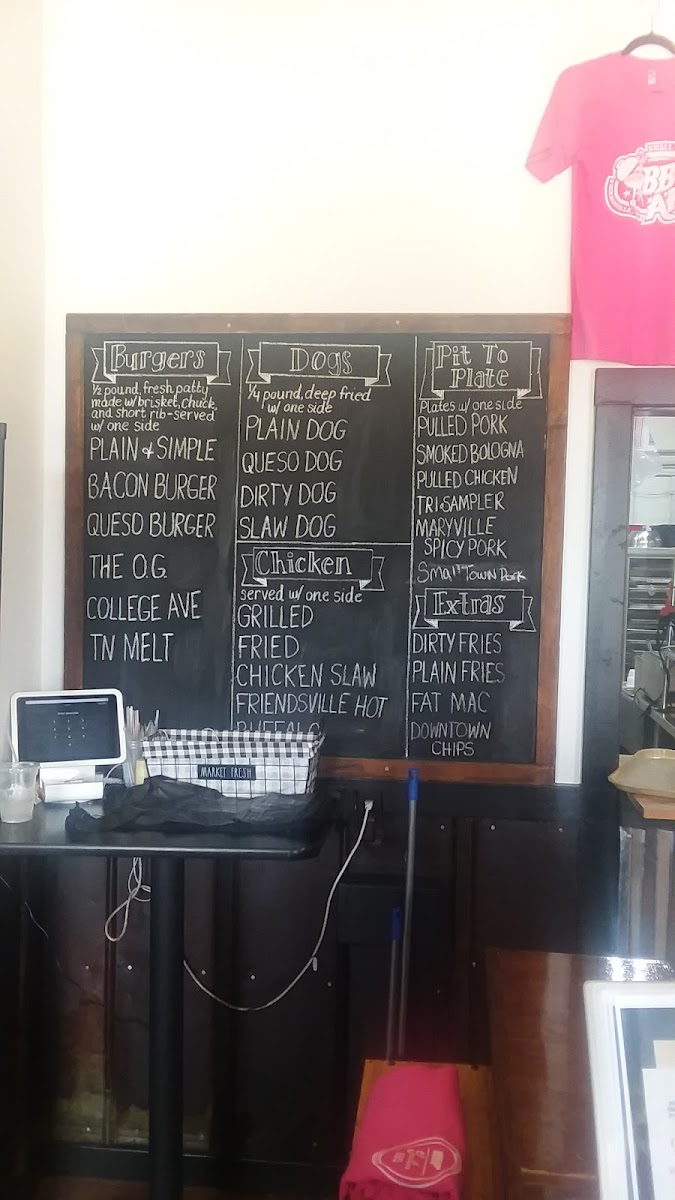 Burgers
½ pound, fresh patty
made w/ brisket, chuck,
and short rib-served
w/ one side
PLAIN & SIMPLE
BACON BURGER
QUESO BURGER
THE O.G.
COLLEGE AVE
TN MELT
Dogs
¼ pound, deep fried
w/ one side
PLAIN DOG
QUESO DOG
DIRTY DOG
SLAW DOG
Chicken
served w/ one side
GRILLED
FRIED
CHICKEN SLAW
FRIENDSVILLE HOT
BUFFALO
Pit To
Plate
Plates w/ one side
PULLED PORK
SMOKED BOLOGNA
PULLED CHICKEN
TRI-SAMPLER
MARYVILLE
SPICY PORK
Small Town Pork
Extras
DIRTY FRIES
PLAIN FRIES
FAT MAC
DOWNTOWN
CHIPS
MARKET FRESH